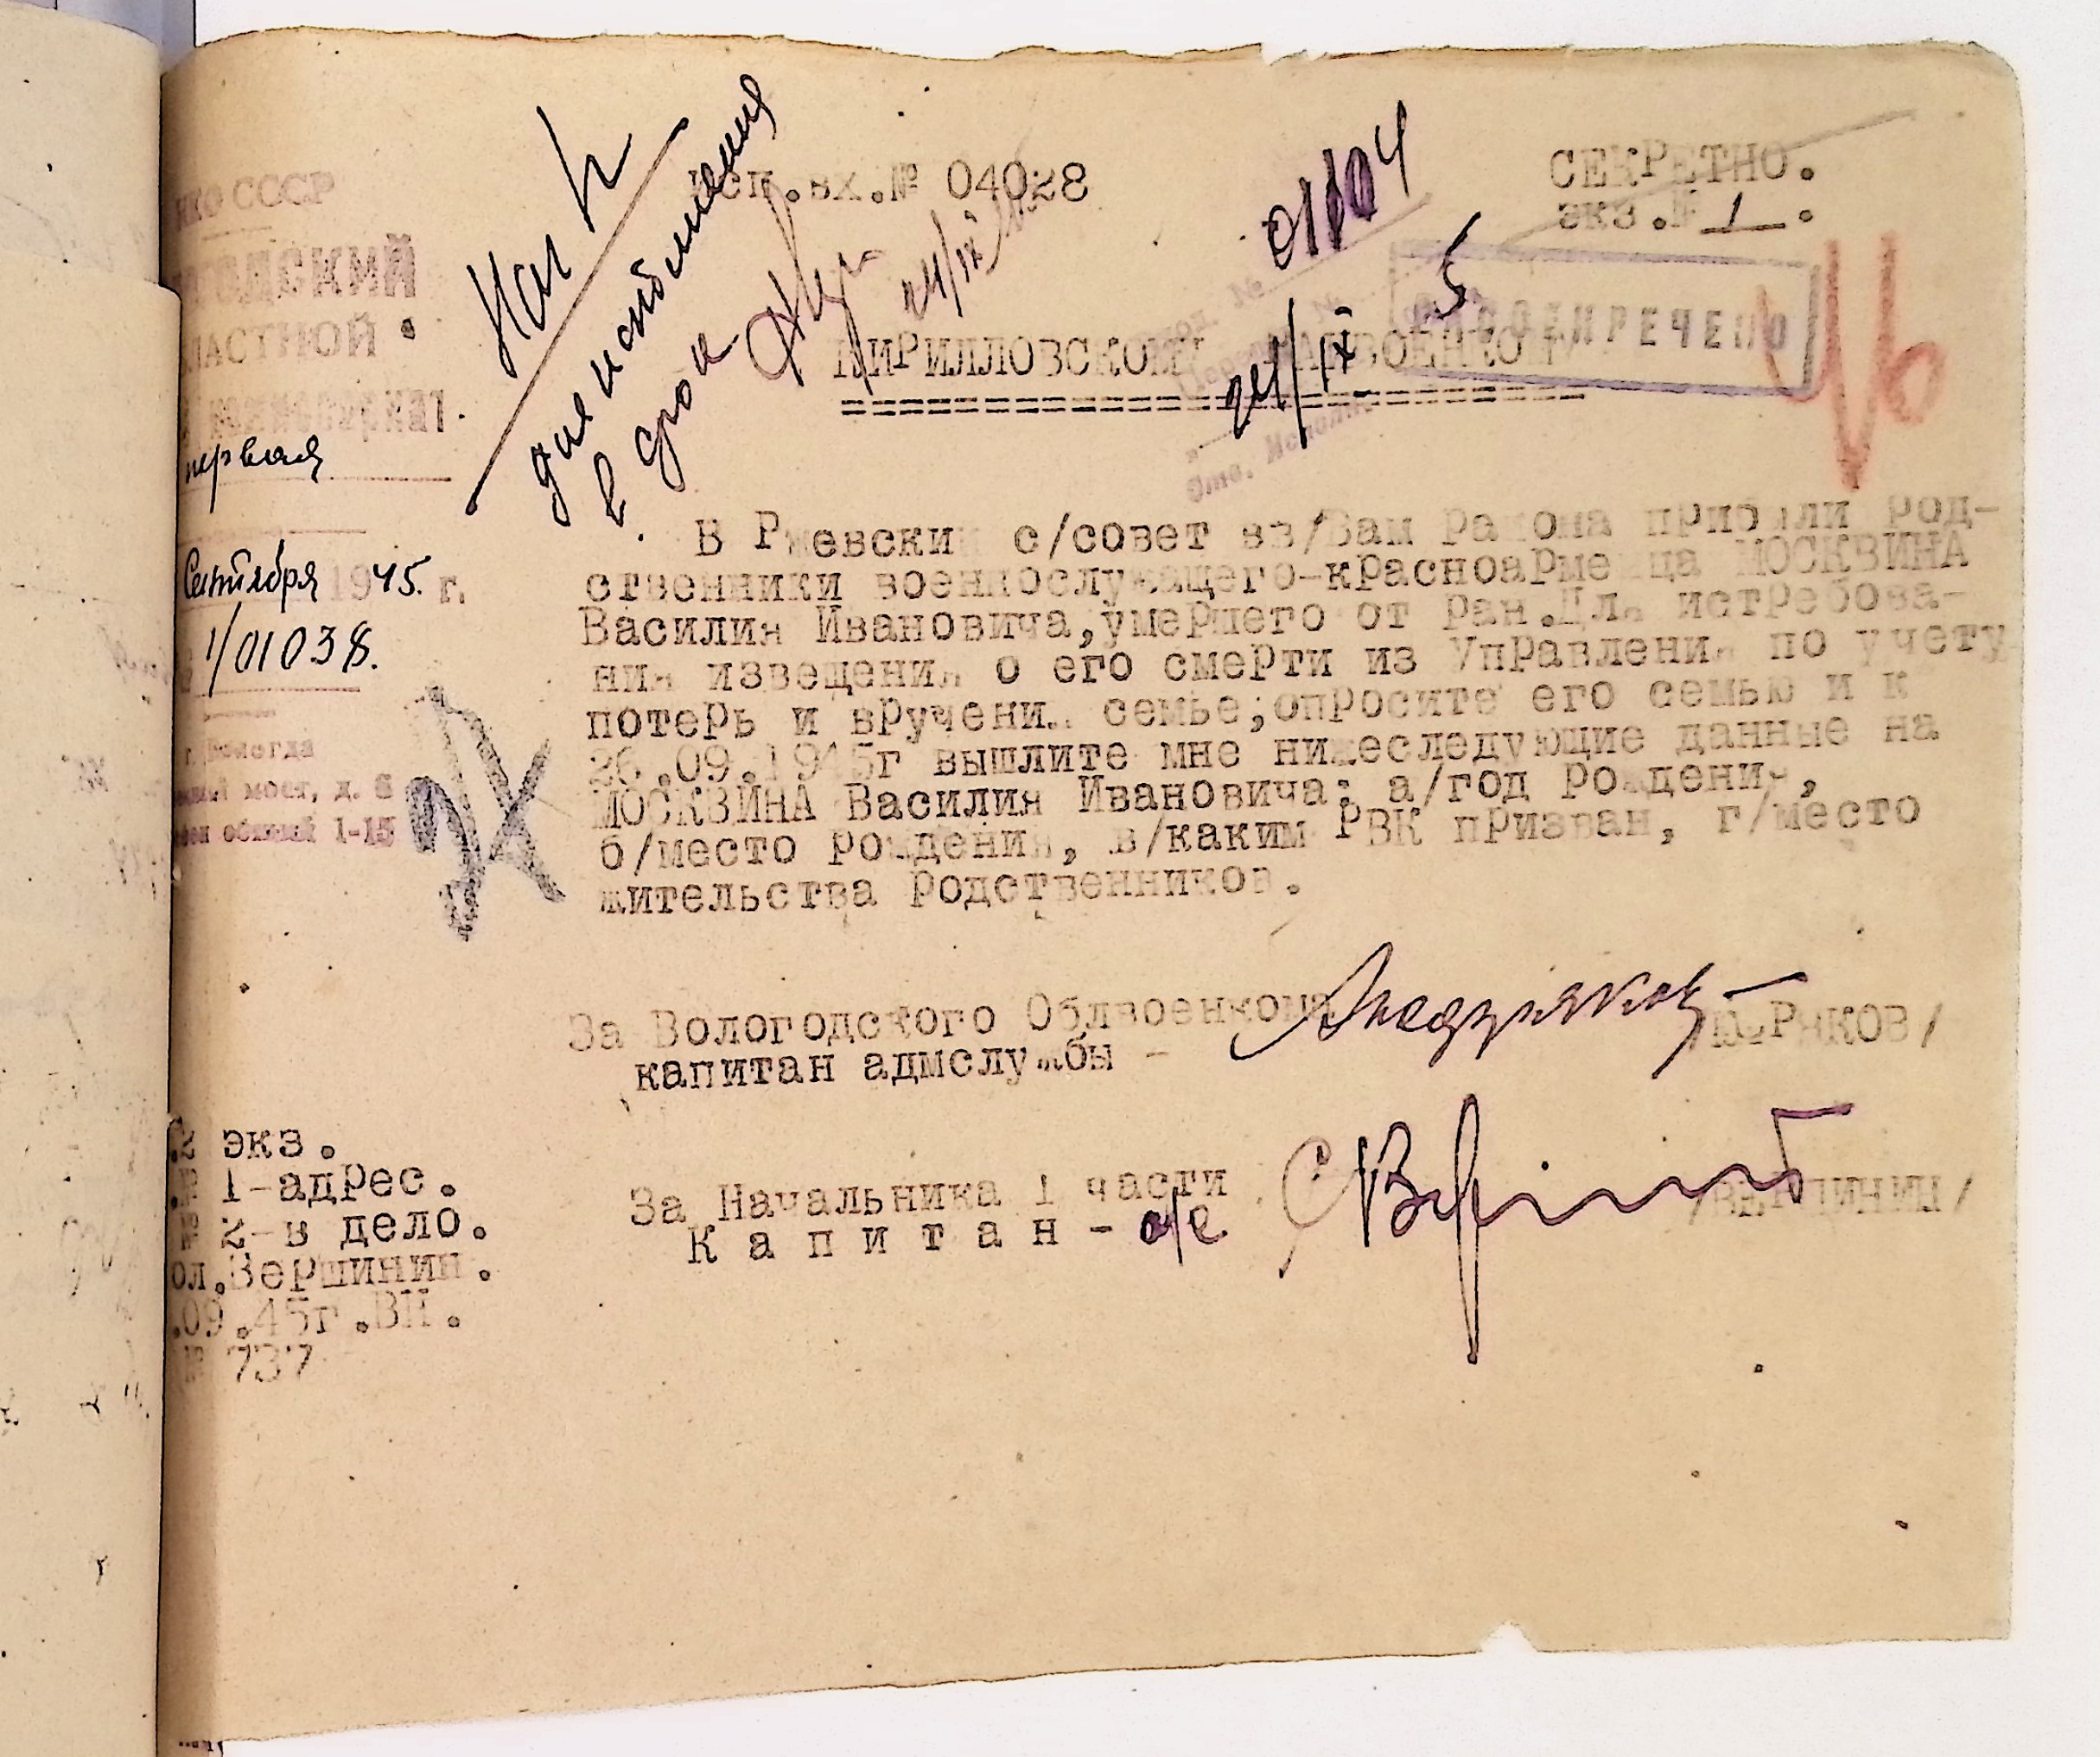 НКО СССР
ОБЛАСТНОЙ
первая
Сентября 1945. г.
1/01038.
г. Вологда
мост, д. 6
общий 1-15
Нач 1
для исполнения
в срок
24/IX
исп.вх.№ 04028
СЕКРЕТНО.
экз.№ 1.
01804
24/IX 5
КИРИЛЛОВСКОМУ РАЙВОЕНКОМУ
46
В Ржевский с/совет вв/Вам района прибыли род-
ственники военнослужащего-красноармейца МОСКВИНА
Василия Ивановича,умершего от ран.Для истребова-
ния извещения о его смерти из Управления по учету
потерь и вручения семье;опросите его семью и к
26.09.1945г вышлите мне нижеследующие данные на
МОСКВИНА Василия Ивановича: а/год рождения,
б/место рождения, в/каким РВК призван, г/место
жительства родственников.
За Вологодского Облвоенкома
капитан адмслужбы -
За Начальника 1 части
К а п и т а н - а/с
/ВЕРШИНИН/
2 экз.
№ 1-адрес.
№ 2-в дело.
Вершинин.
.09.45г.ВН.
№ 737